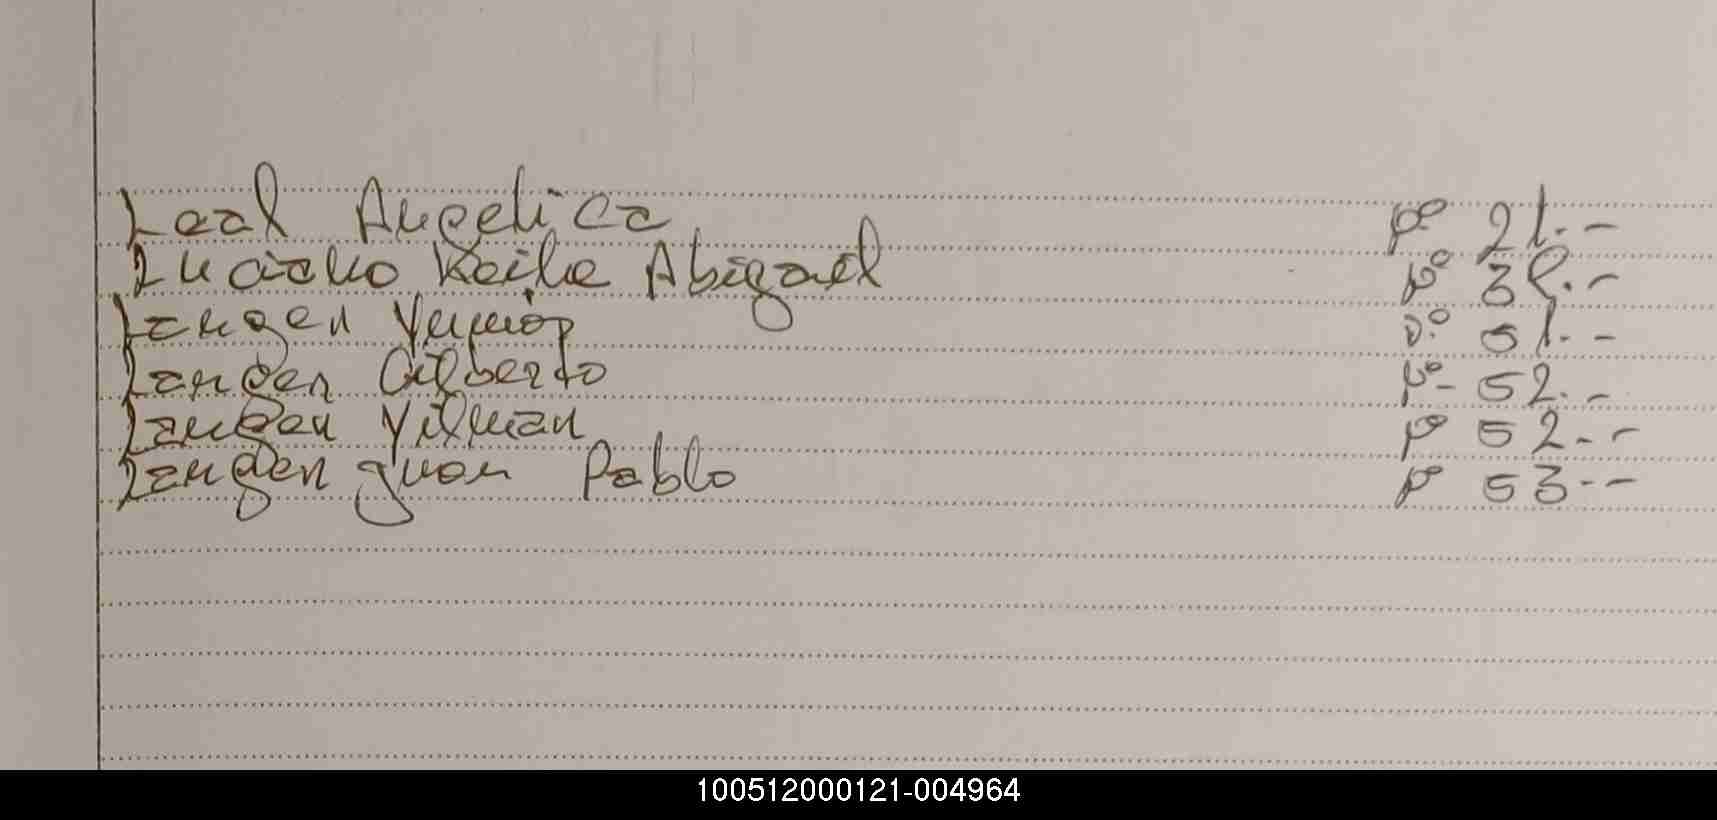 Leal Angelica pº 21.-
Luciano Keila Abigail pº 38.-
Langen Yunior pº 51.-
Langen Gilberto pº- 52.-
Langen Vilman pº 52.-
Langen Juan Pablo pº 53.-
100512000121-004964